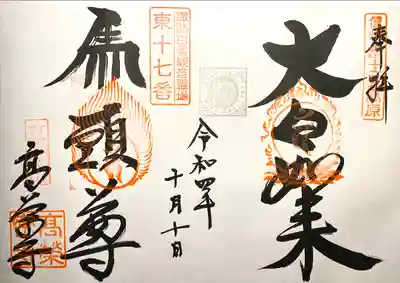 奉拝
大日如来
令和四年
十月十日
東十七番
馬頭尊
高栄寺
高榮